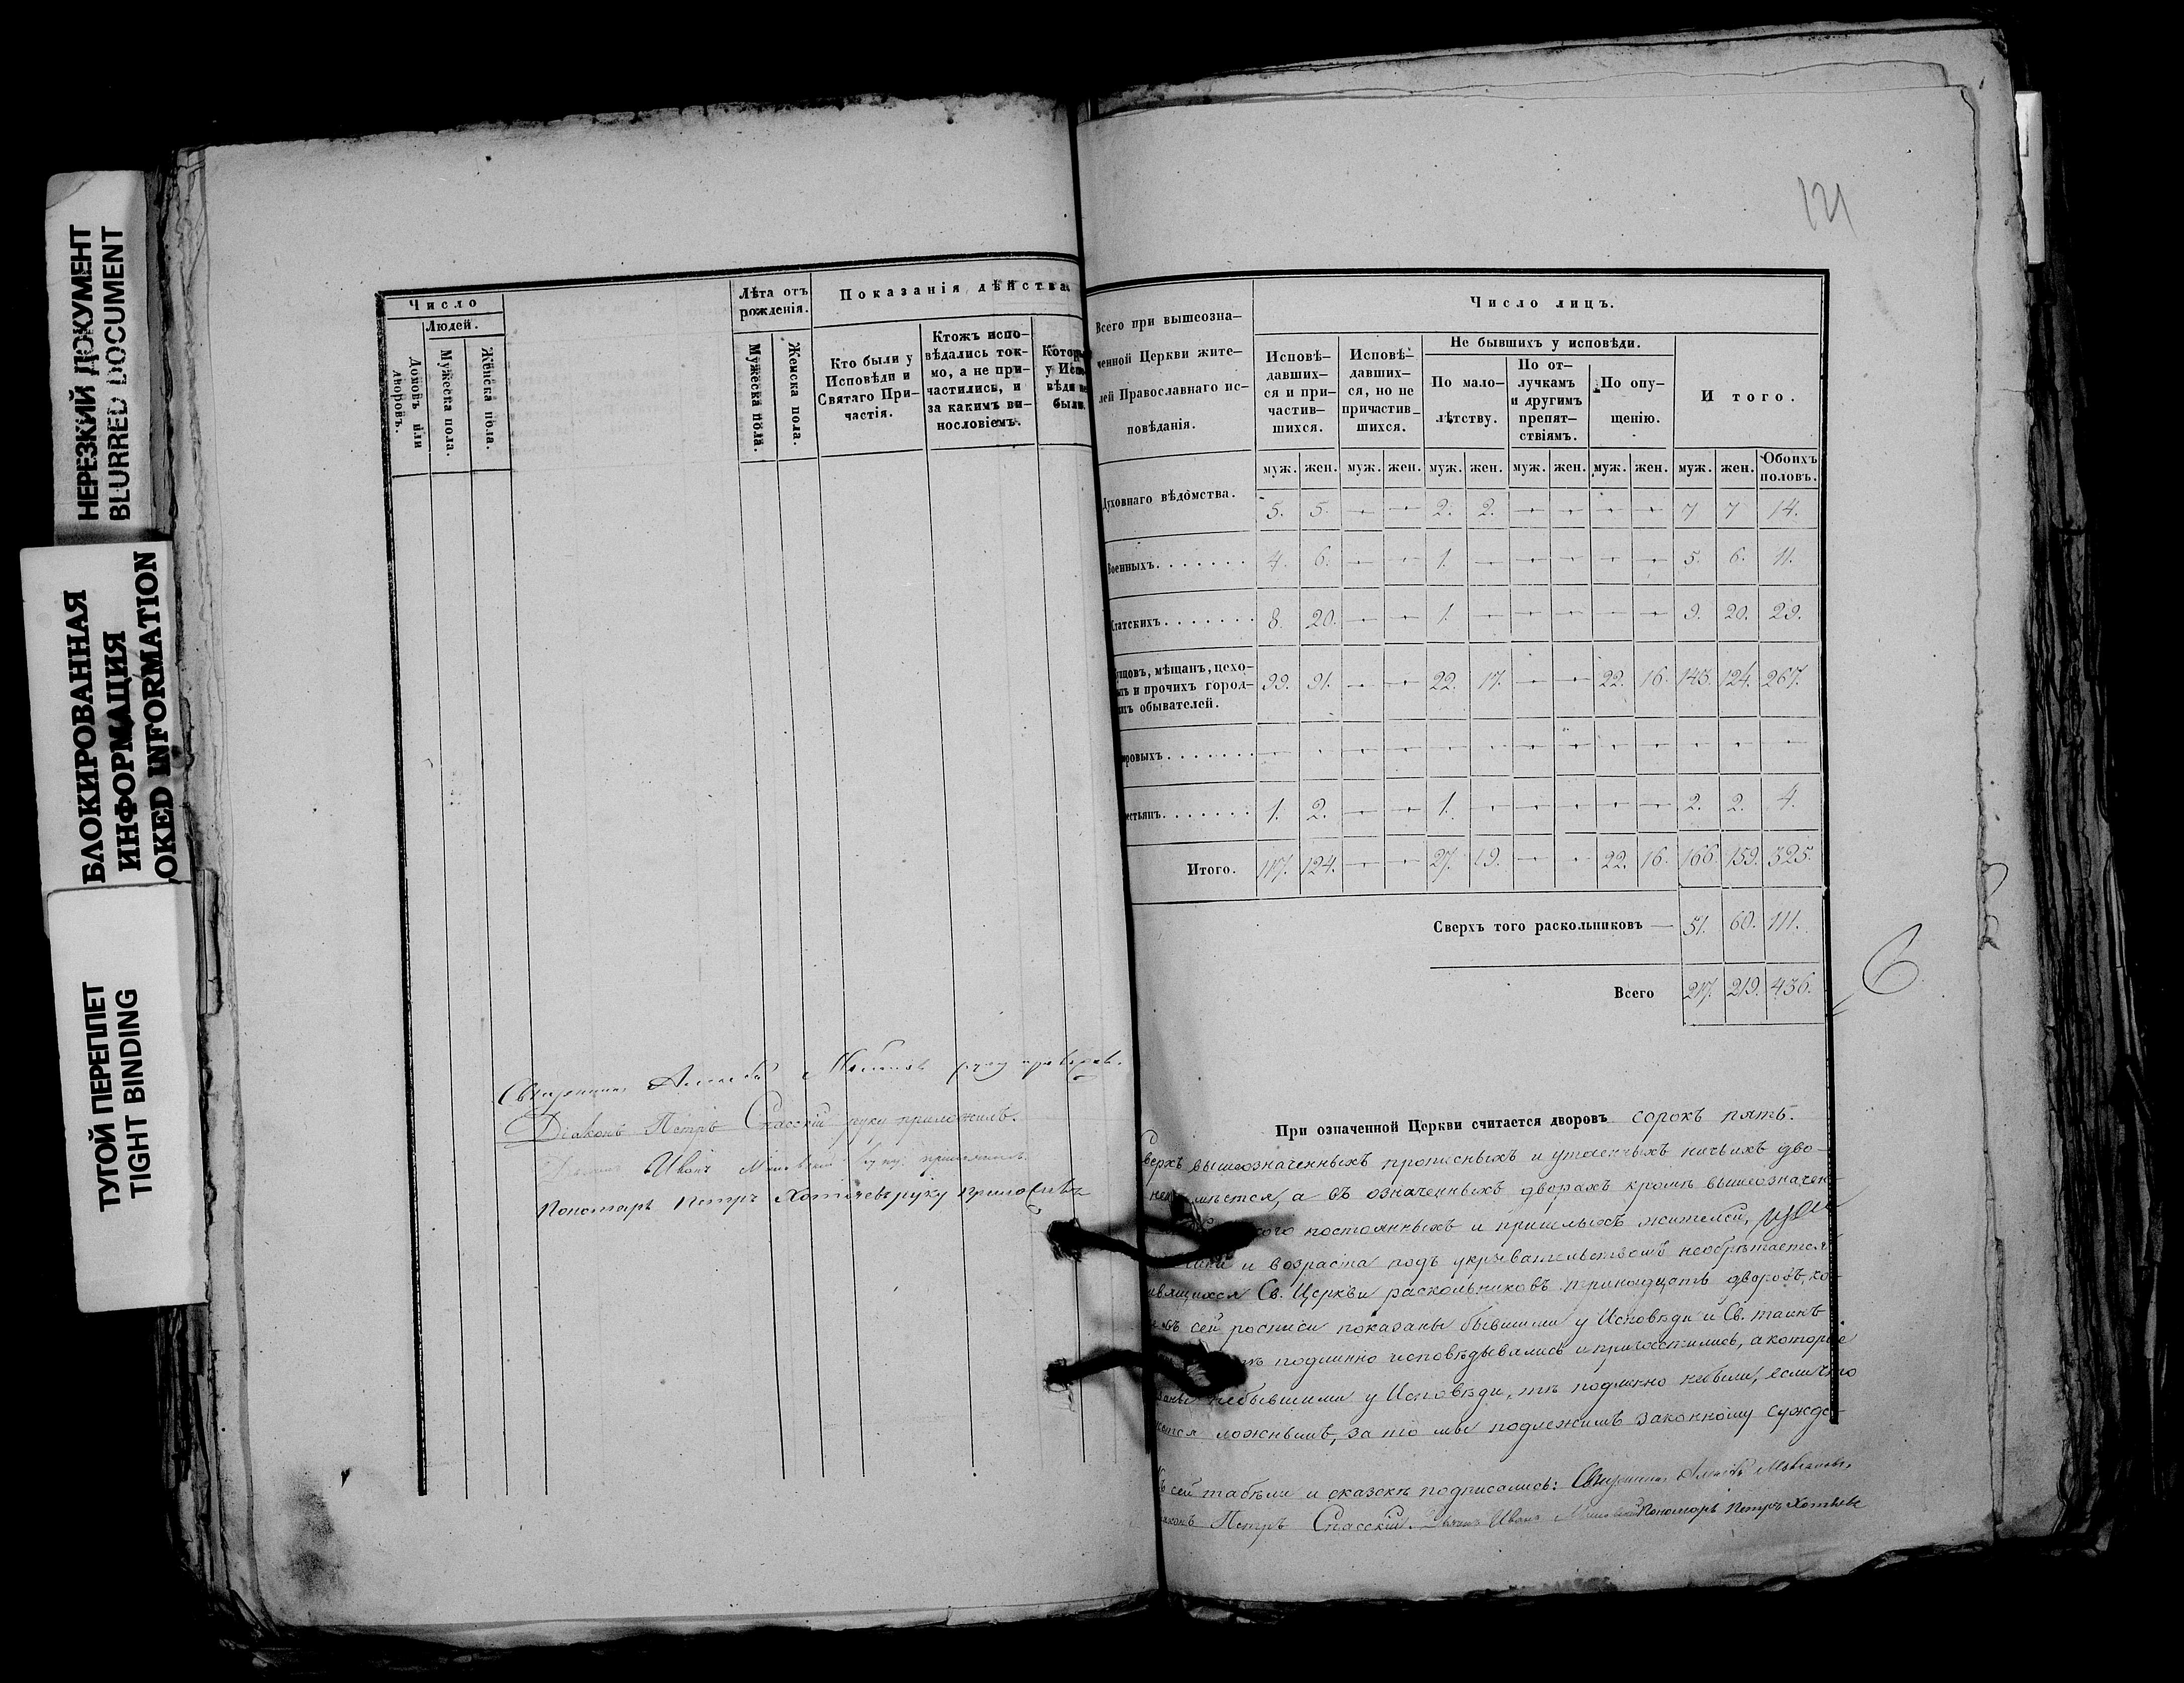 НЕРЕЗКИЙ ДОКУМЕНТ
BLURRED DOCUMENT
БЛОКИРОВАННАЯ
ИНФОРМАЦИЯ
OKED INFORMATION
ТУГОЙ ПЕРЕПЛЕТ
TIGHT BINDING
Число
Людей.
Домовъ или дворовъ.
Мужеска пола.
Женска пола.
Лѣта отъ рожденія.
Мужеска пола.
Женска пола.
Показанія дѣйства.
Кто были у Исповѣди и Святаго Причастія.
Ктожъ исповѣдались токмо, а не причастились, и за какимъ винословіемъ.
были.
Священникъ Алексѣй руку
Діаконъ Петръ Спасскій руку приложилъ.
Иванъ руку приложилъ.
Пономарь Петръ руку приложилъ
121
Всего при вышеозна-
ченной Церкви жите-
лей Православнаго ис-
повѣданія.
Число лицъ.
Исповѣдавшихся и причастившихся.
Исповѣдавшихся, но не причастившихся.
Не бывшихъ у исповѣди.
По малолѣтству.
По отлучкамъ и другимъ препятствіямъ.
По опущенію.
Итого.
муж. жен. муж. жен. муж. жен. муж. жен. муж. жен. муж. жен. Обоихъ половъ.
Духовнаго вѣдомства. 5. 5. — — 2. 2. — — — — 7 7 14.
Военныхъ. . . . . . . 4. 6. — — 1. — — — — — 5. 6. 11.
татскихъ. . . . . . . 8. 20. — — 1. — — — — — 9. 20. 29.
пцовъ, мѣщанъ, цехо-
и прочихъ город-
обывателей. 99. 91. — — 22. 17. — — 22. 16. 143. 124. 267.
ровыхъ. . . . . . . — — — — — — — — — — — — —
естьянъ. . . . . . . 1. 2. — — 1. — — — — — 2. 2. 4.
Итого. 117. 124. — — 27. 19. — — 22. 16. 166. 159. 325.
Сверхъ того раскольниковъ — 51. 60. 111.
Всего 217. 219. 436.
6
При означенной Церкви считается дворовъ сорокъ пять.
верхъ вышеозначенныхъ прописныхъ и утаенныхъ ничьихъ дво-
имѣется, а въ означенныхъ дворахъ кромѣ вышеозначен-
кого постоянныхъ и пришлыхъ жителей,
и возраста подъ укрывательствомъ необрѣтается
Св. Церкви раскольниковъ тринадцать дворовъ, ко-
въ сей росписи показаны бывшими у Исповѣди и Св. таинъ
подлинно исповѣдывались и причастились, а которые
небывшими у Исповѣди, тѣ подлинно небыли, если что
ложнымъ, за то мы подлежимъ законному сужде-
сей табели и сказкѣ подписались: Священникъ Алексѣй
Петръ Спасскій. Иванъ Пономарь Петръ